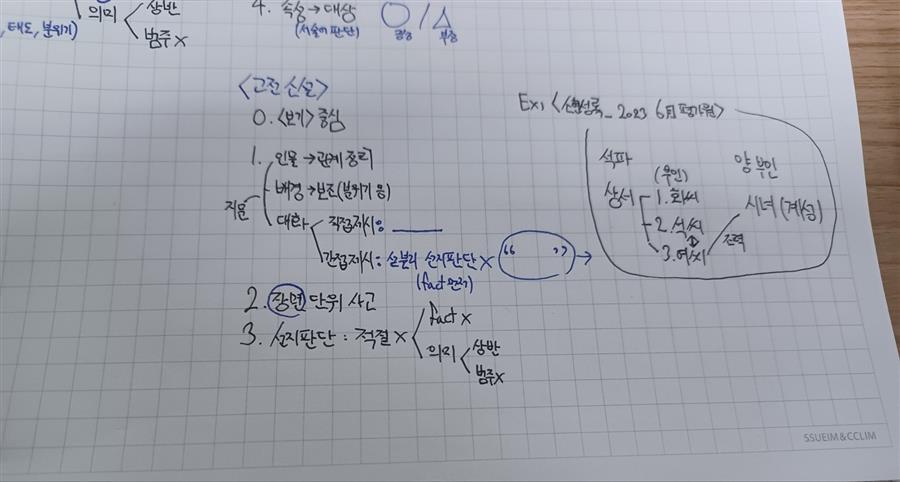 의미 < 상반
, 태도, 분위기)
범주 x
4. 속성 → 대상 ○ / △
(서술어 판단) 긍정 부정
<고전소설>
0. <보기> 중심
1. 인물 → 관계 정리
지문
배경 → (분위기 등)
대화 직접제시:
간접제시: 섣불리 선지판단 x “ ” →
(fact 먼저)
2. 장면 단위 사고
3. 선지판단 : 적절 x fact x
의미 < 상반
범주x
Ex) < _ 2023 6月 평가원>
석파 양부인
(부인)
상서 1. 화씨 시녀 (계성)
2. 석씨
3. 여씨 조력
SSUEIM&CCLIM